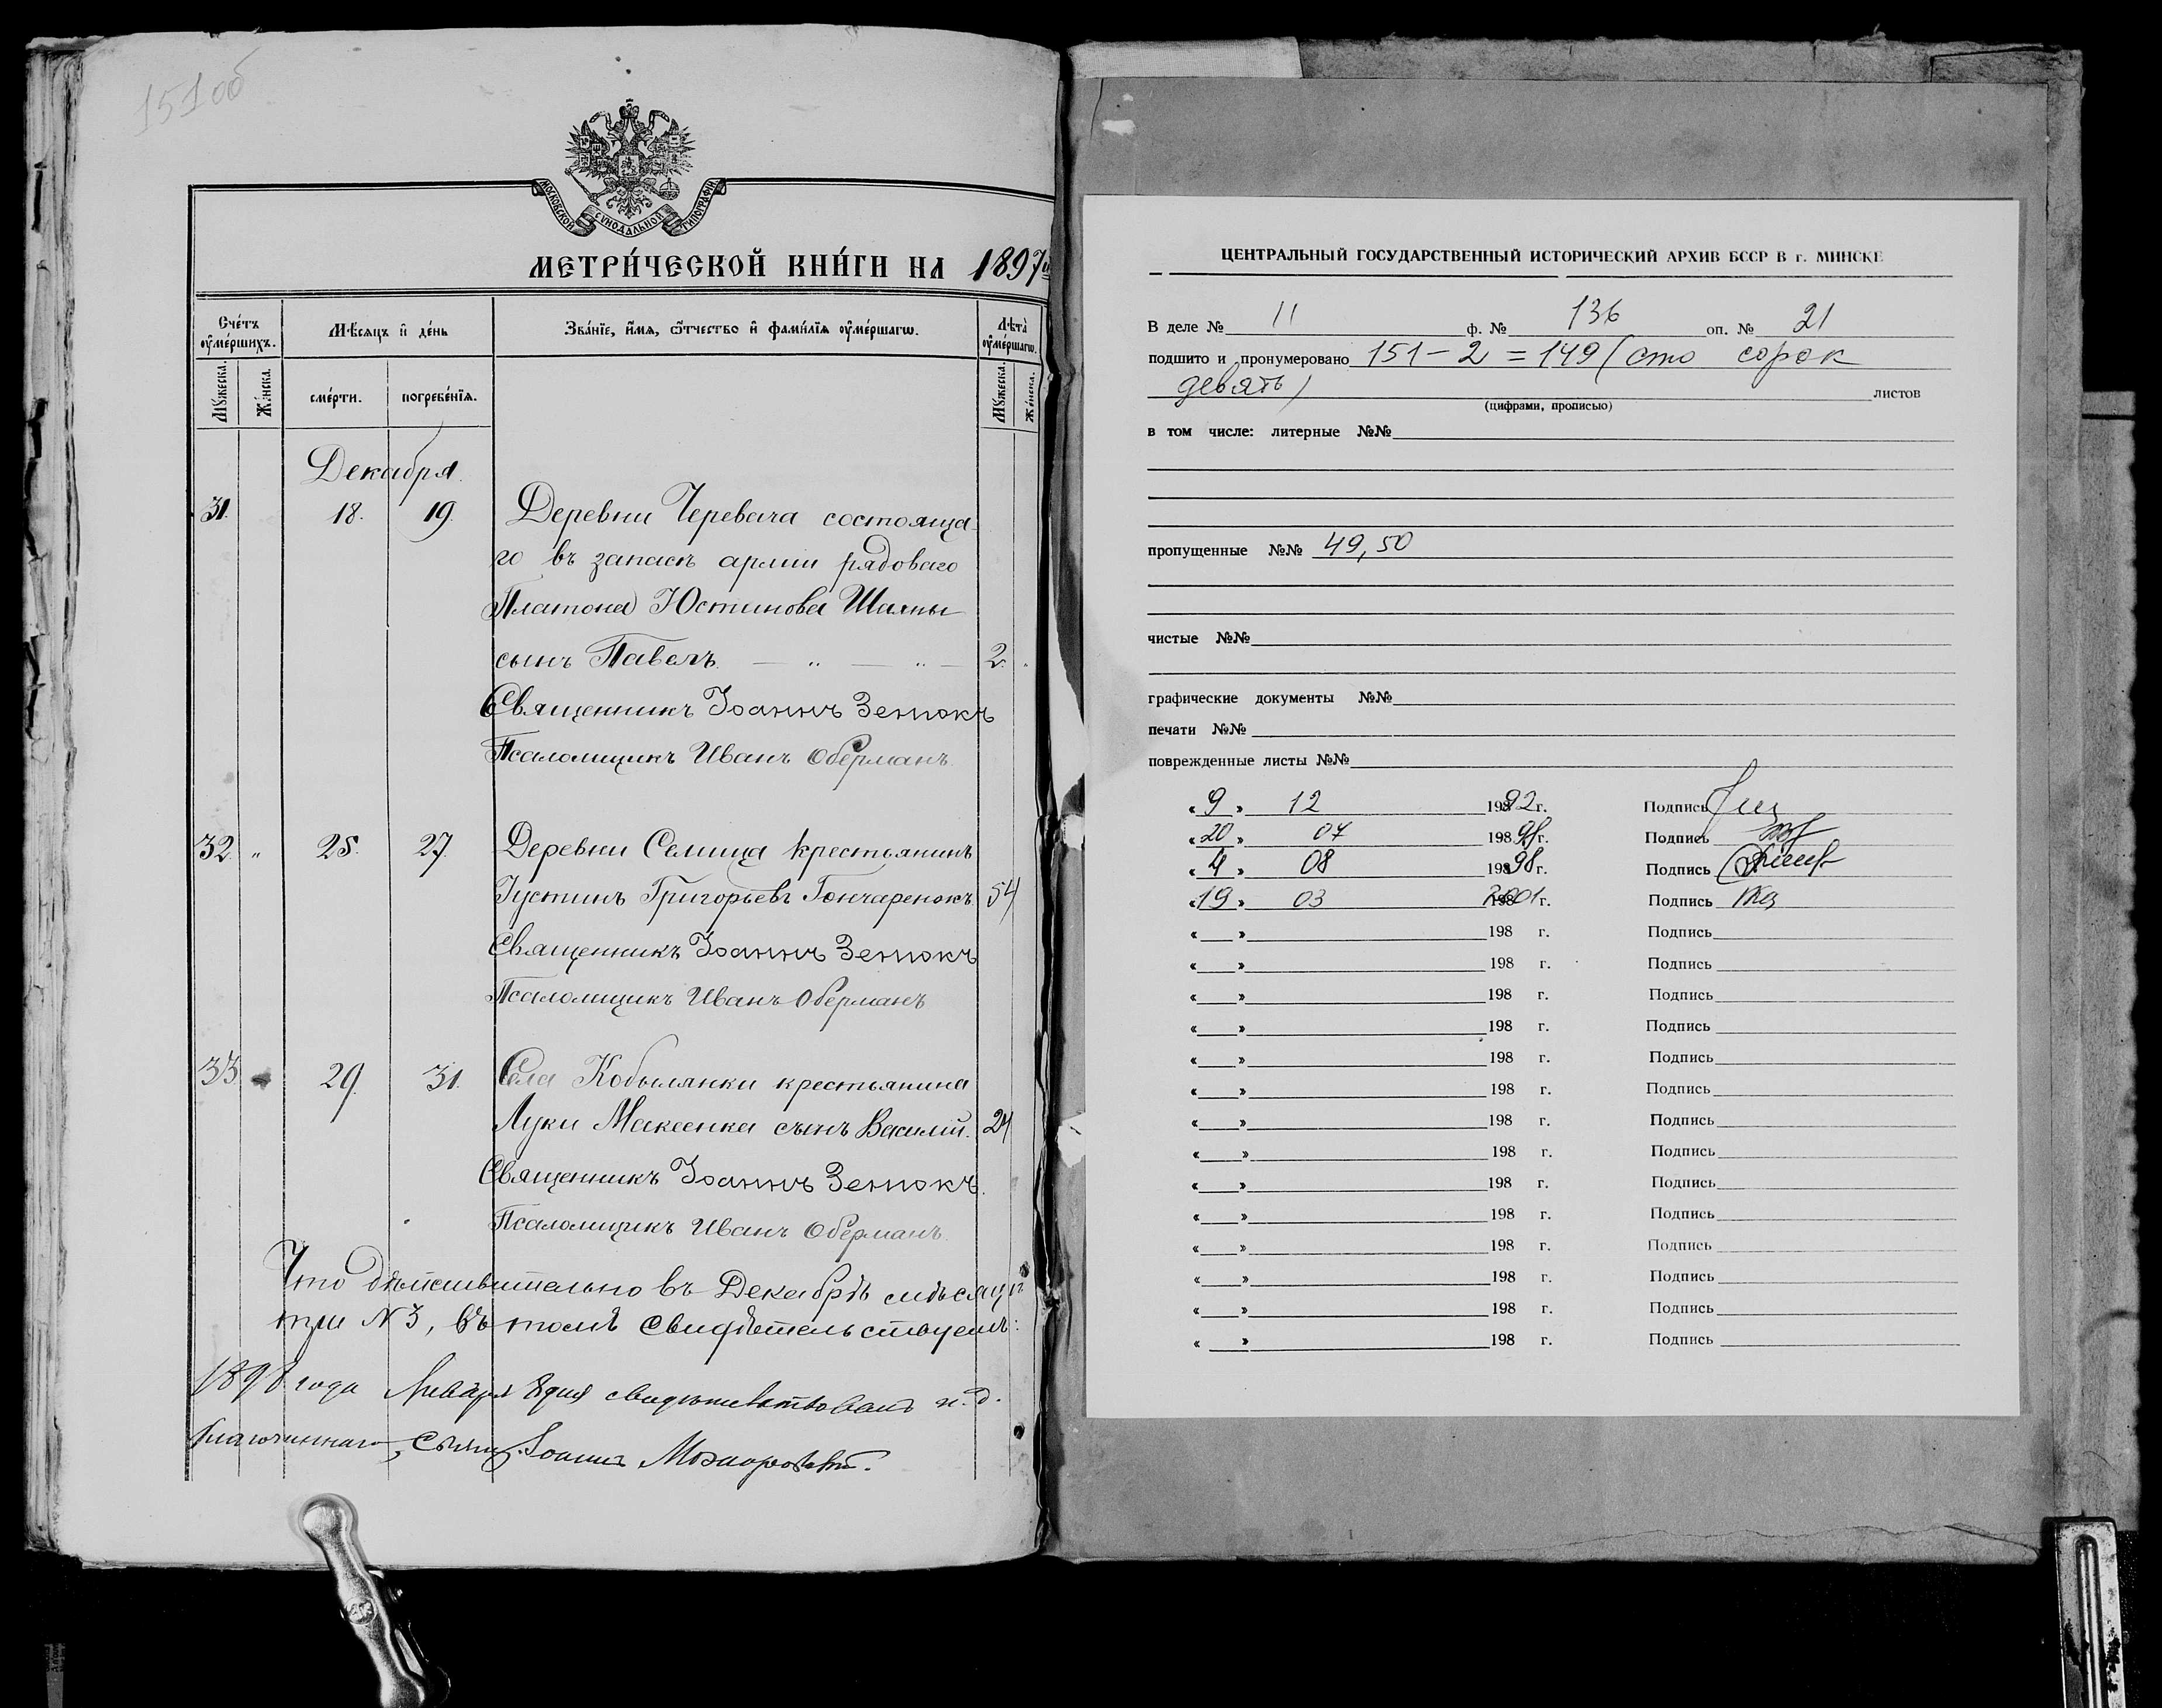 151об
МОСКОВСКОЙ СѴНОДАЛЬНОЙ ТИПОГРАФІИ
МЕТРИ́ЧЕСКОЙ КНИ́ГИ НА 1897й
Сче́тъ оу҆ме́ршихъ.
Мѣ́сяцъ и҆ де́нь
Зва́нїе, и҆́мя, ѻ҆́тчество и҆ фами́лїя оу҆ме́ршагѡ.
Лѣта̀ оу҆ме́ршагѡ.
Мꙋ́жеска.
Же́нска.
сме́рти.
погребе́нїя.
Мꙋ́жеска.
Же́нска.
Декабря
31. 18. 19. Деревни Черевача состояща-
го въ запасѣ арміи рядоваго
Платона Юстинова Шаяпы
сынъ Павелъ. — „ — „ — 2.
Священникъ Іоаннъ Зенюкъ
Псаломщикъ Иванъ Оберманъ.
32. „ 25. 27. Деревни Селища крестьянинъ
Іустинъ Григорьевъ Гончаренокъ 54
Священникъ Іоаннъ Зенюкъ
Псаломщикъ Иванъ Оберманъ
33 29. 31. Села Кобылянки крестьянина
Луки Макеенка сынъ Василій. 24
Священникъ Іоаннъ Зенюкъ.
Псаломщикъ Иванъ Оберманъ.
Что дѣйствительно въ Декабрѣ мѣсяцѣ
три №3, въ томъ свидѣтельствуемъ:
1898 года Января 8 дня свидѣтельствовалъ и. д.
благочиннаго, Свящ. Іоаннъ
ЦЕНТРАЛЬНЫЙ ГОСУДАРСТВЕННЫЙ ИСТОРИЧЕСКИЙ АРХИВ БССР В г. МИНСКЕ
В деле № 11 ф. № 136 оп. № 21
подшито и пронумеровано 151-2=149 (сто сорок
девять) листов
(цифрами, прописью)
в том числе: литерные №№
пропущенные №№ 49, 50
чистые №№
графические документы №№
печати №№
поврежденные листы №№
« 9 » 12 198 92 г. Подпись
« 20 » 07 198 98 г. Подпись
« 4 » 08 198 98 г. Подпись
« 19 » 03 198 2001 г. Подпись
« » 198 г. Подпись
« » 198 г. Подпись
« » 198 г. Подпись
« » 198 г. Подпись
« » 198 г. Подпись
« » 198 г. Подпись
« » 198 г. Подпись
« » 198 г. Подпись
« » 198 г. Подпись
« » 198 г. Подпись
« » 198 г. Подпись
« » 198 г. Подпись
« » 198 г. Подпись
« » 198 г. Подпись